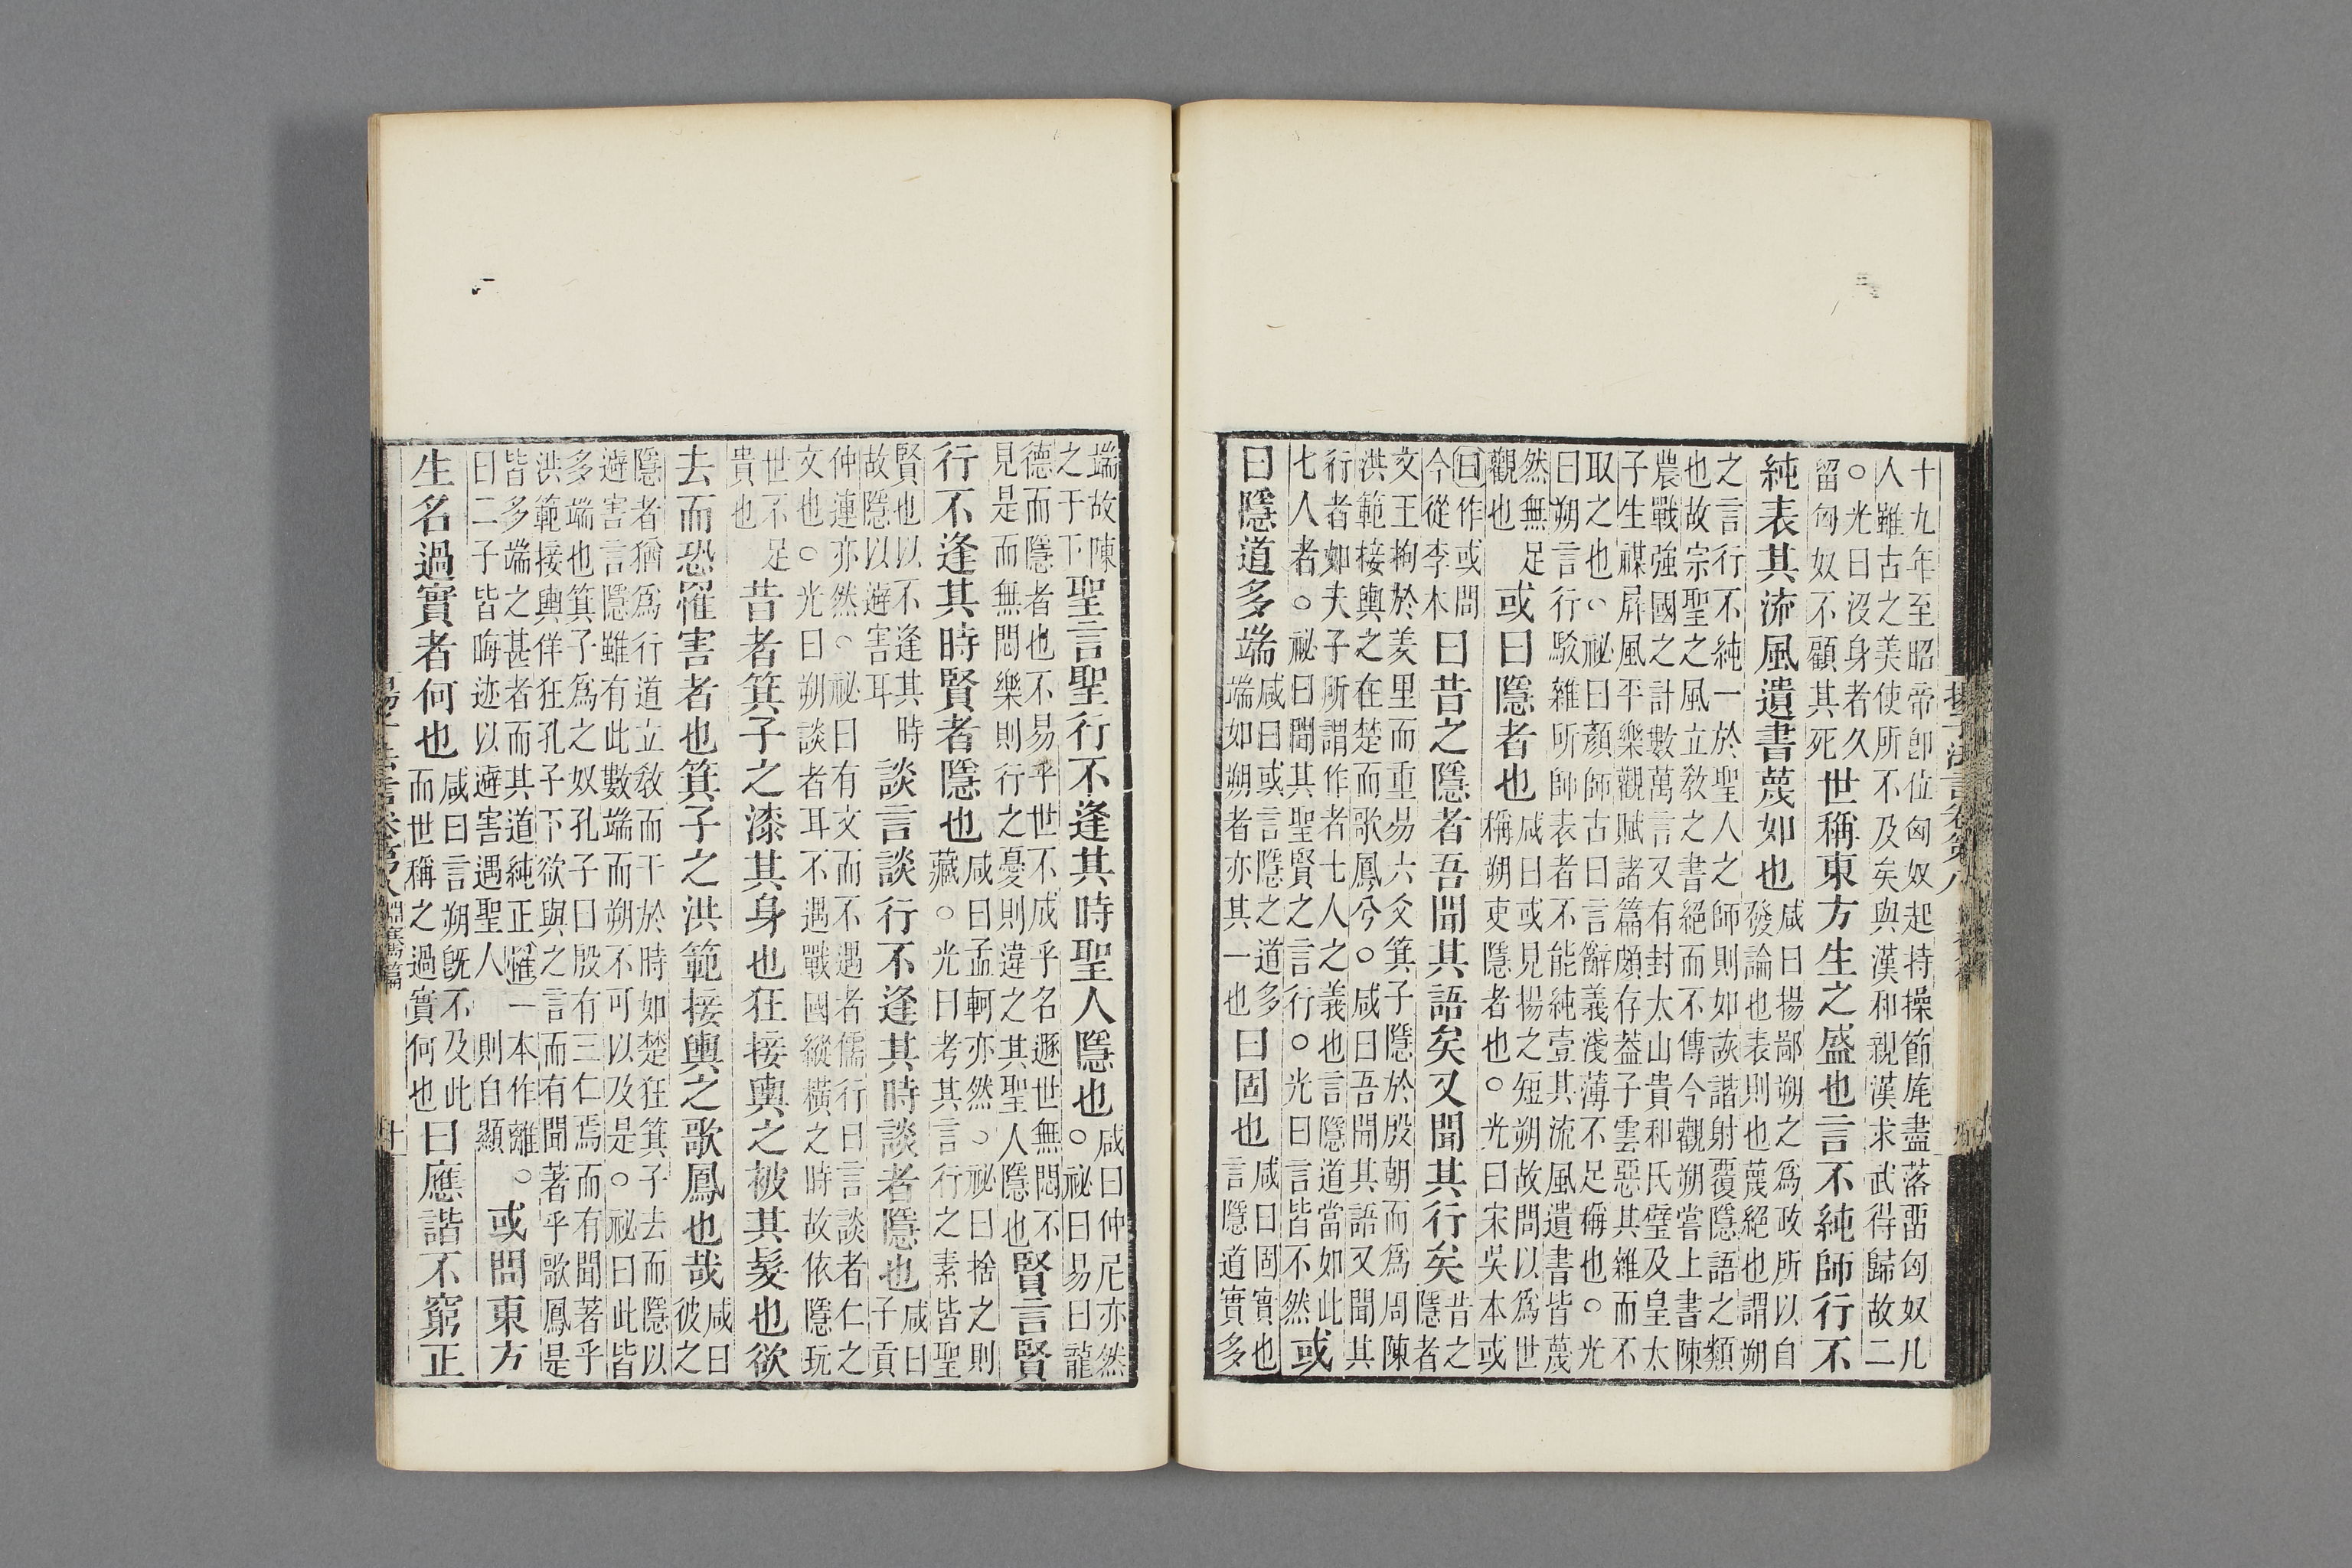 揚子法言卷第八
十九年至昭帝卽位匈奴起持操節旄盡落畱匈奴凡
人雖古之美使所不及矣與漢和親漢求武得歸故二
○光曰沒身者久
留匈奴不顧其死
世稱東方生之盛也言不純師行不
純表其流風遺書蔑如也
咸曰揚鄙朔之爲政所以自
發論也表則也蔑絕也謂朔
之言行不純一於聖人之師則如詼諧射覆隱語之類
也故宗聖之風立敎之書絕而不傳今觀朔嘗上書陳
農戰強國之計數萬言又有封太山貴和氏璧及皇太
子生禖屛風平樂觀賦諸篇頗存葢子雲惡其雜而不
取之也○祕曰顏師古曰言辭義淺薄不足稱也○光
曰朔言行駁雜所師表者不能純壹其流風遺書皆蔑
然無足
觀也
或曰隱者也
咸曰或見揚之短朔故問以爲世
稱朔吏隱者也○光曰宋吳本或
曰作或問
今從李本
曰昔之隱者吾聞其語矣又聞其行矣
昔之
隱者
文王拘於羑里而重易六爻箕子隱於殷朝而爲周陳
洪範接輿之在楚而歌鳳兮○咸曰吾聞其語又聞其
行者如夫子所謂作者七人之義也言隱道當如此
七人者○祕曰聞其聖賢之言行○光曰言皆不然
或
曰隱道多端
咸曰或言隱之道多
端如朔者亦其一也
曰固也
咸曰固實也
言隱道實多
端故陳
之于下
聖言聖行不逢其時聖人隱也
咸曰仲尼亦然
○祕曰易曰龍
德而隱者也不易乎世不成乎名遯世無悶不
見是而無悶樂則行之憂則違之其聖人隱也
賢言賢
行不逢其時賢者隱也
咸曰孟軻亦然○祕曰捨之則
藏○光曰考其言行之素皆聖
賢也以不逢其時
故隱以避害耳
談言談行不逢其時談者隱也
咸曰
子貢
仲連亦然○祕曰有文而不遇者儒行曰言談者仁之
文也○光曰朔談者耳不遇戰國縱橫之時故依隱玩
世不足
貴也
昔者箕子之漆其身也狂接輿之被其髮也欲
去而恐罹害者也箕子之洪範接輿之歌鳳也哉
咸曰
彼之
隱者猶爲行道立敎而干於時如楚狂箕子去而隱以
避害言隱雖有此數端而朔不可以及是○祕曰此皆
多端也箕子爲之奴孔子曰殷有三仁焉而有聞著乎
洪範接輿佯狂孔子下欲與之言而有聞著乎歌鳳是
皆多端之甚者而其道純正罹一本作離○
曰二子皆晦迹以避害遇聖人則自顯
或問東方
生名過實者何也
咸曰言朔旣不及此
而世稱之過實何也
曰應諧不窮正
揚子法言卷第八 淵騫篇